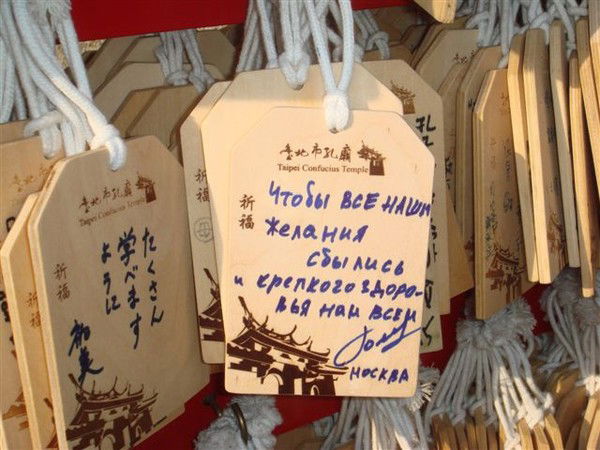 臺北市孔廟
Taipei Confucius Temple
祈福
Чтобы ВСЕ НАШИ
желания
сбылись
и крепкого здоро-
вья нам всем
МОСКВА
臺北市孔廟
Taipei Confucius Temple
祈福
たくさん
学べます
ように